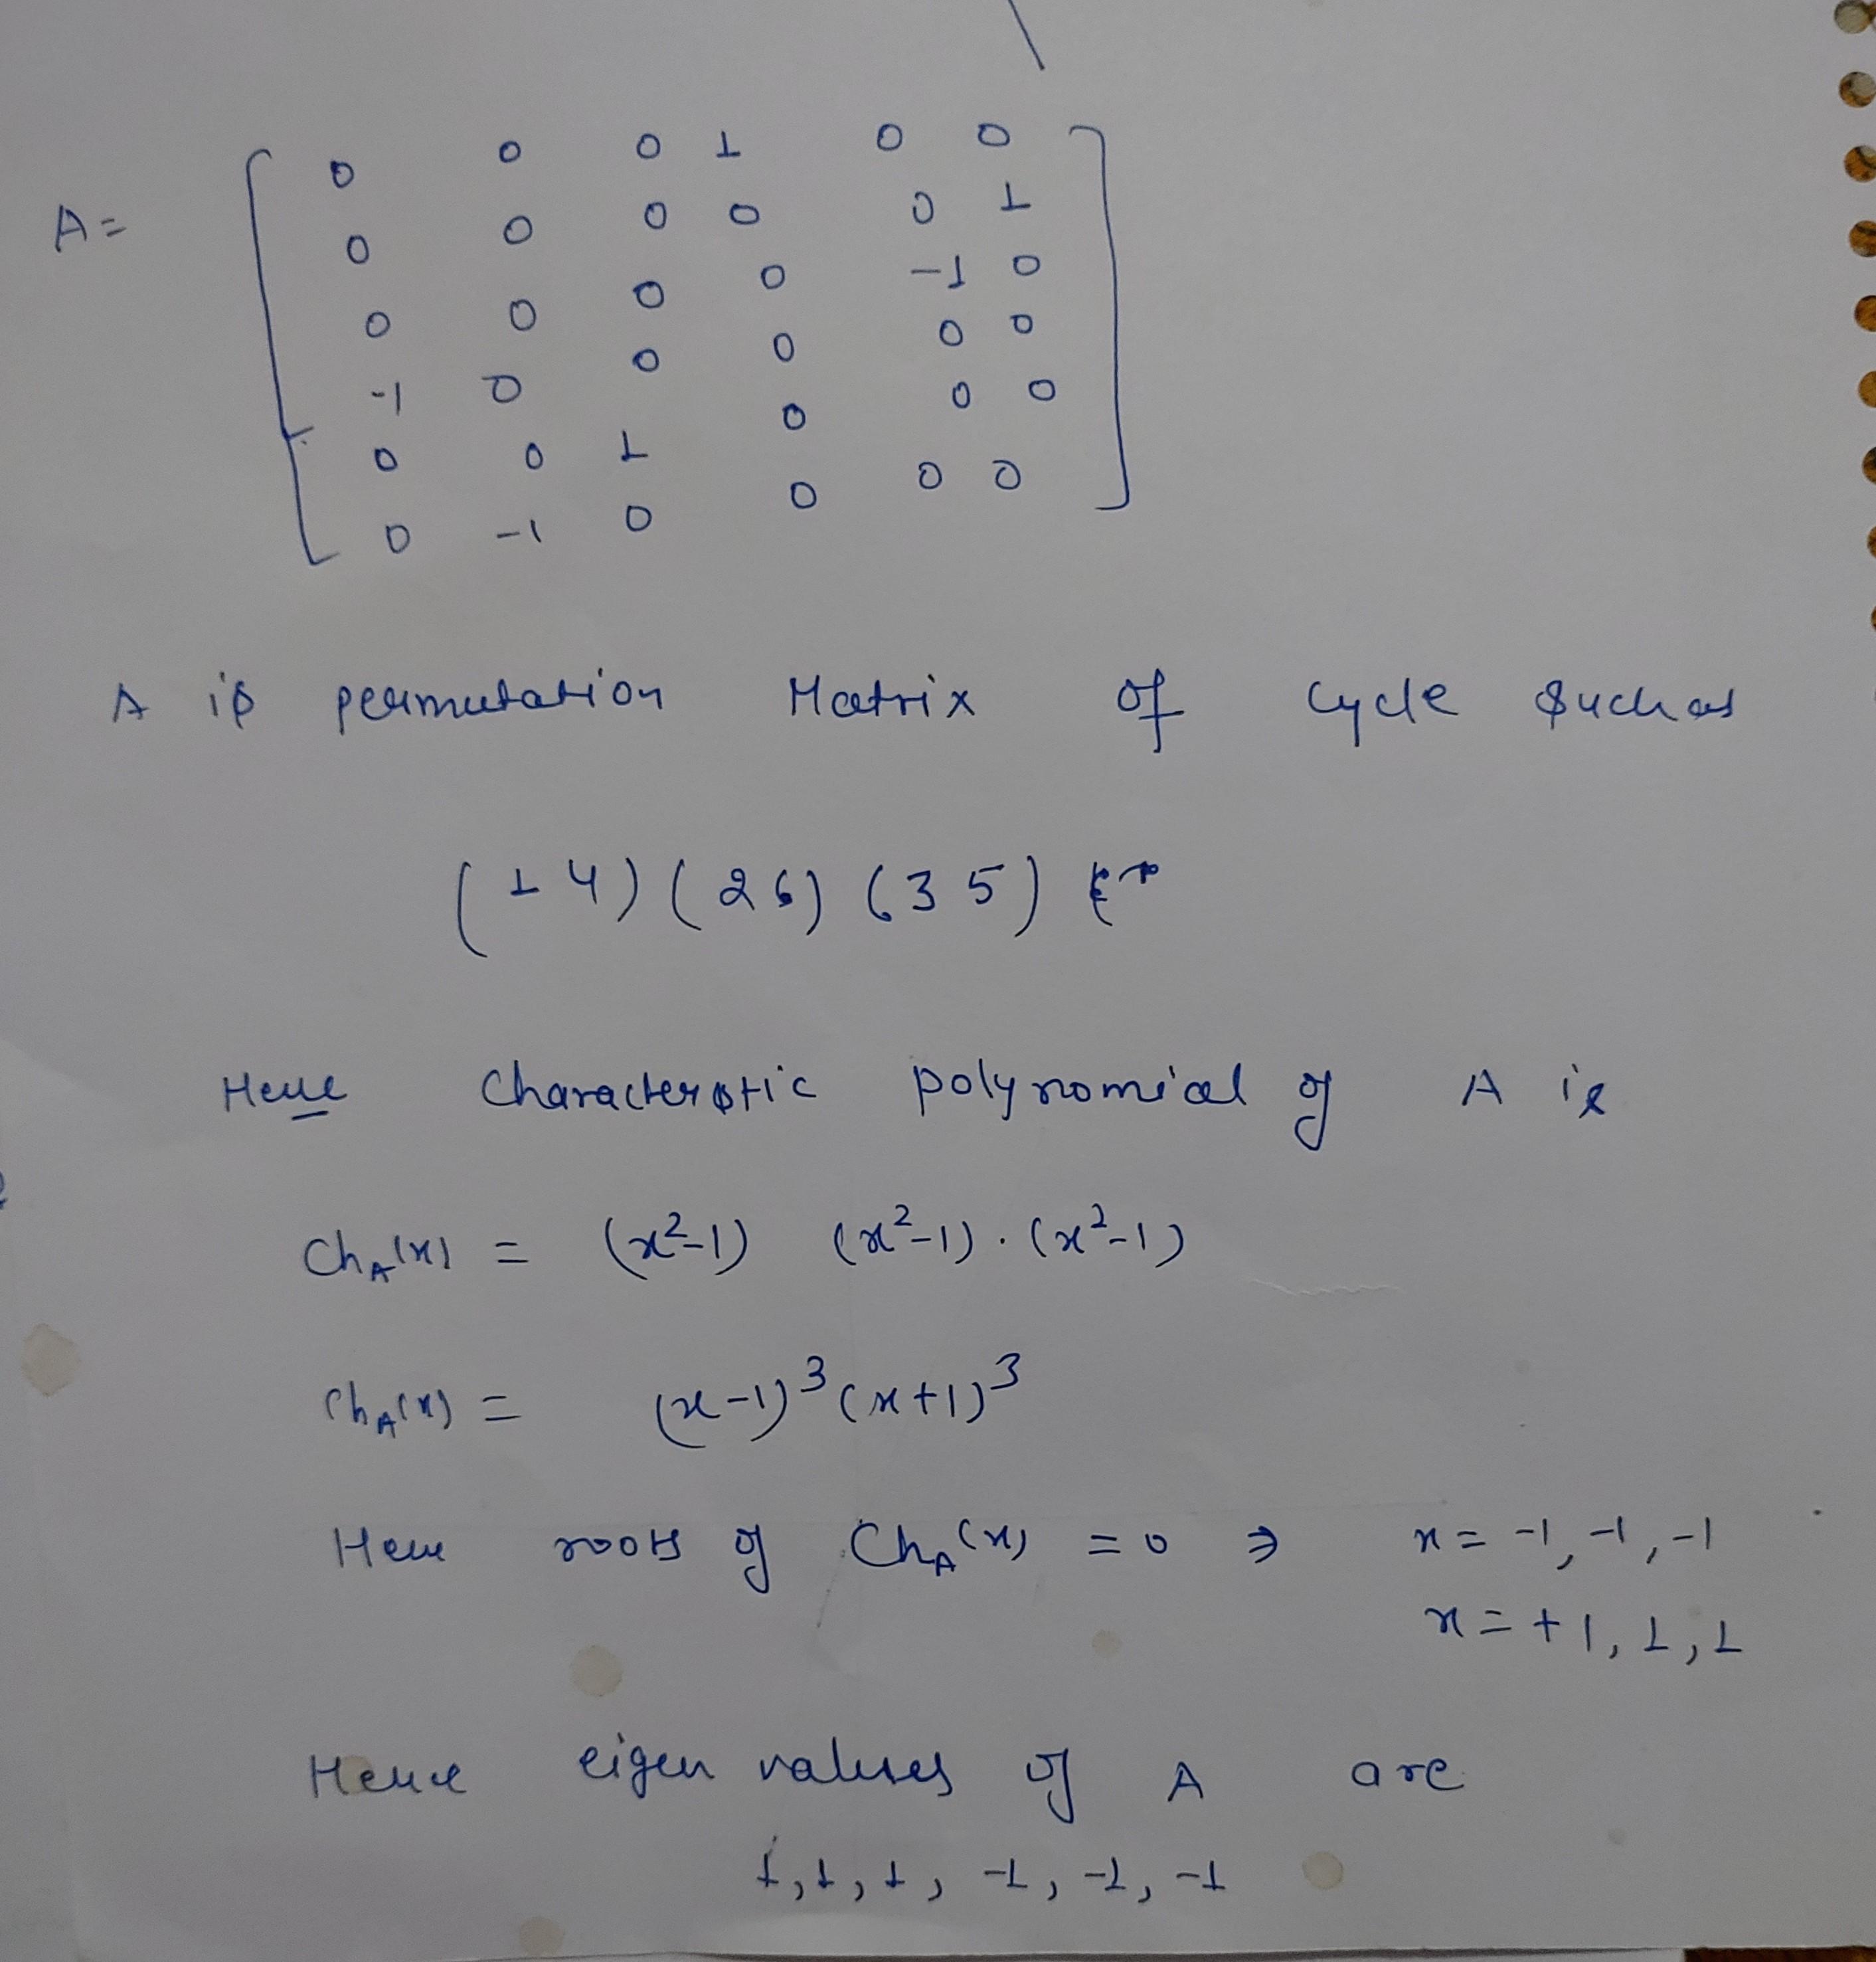 A =
0 0 0 1 0 0
0 0 0 0 0 1
0 0 0 0 -1 0
-1 0 0 0 0 0
0 0 1 0 0 0
0 -1 0 0 0 0
A is permutation Matrix of cycle such as
(1 4) (2 6) (3 5)
Here Characterstic polynomial of A is
Ch_A(x) = (x²-1) (x²-1) . (x²-1)
Ch_A(x) = (x-1)³ (x+1)³
Here roots of Ch_A(x) = 0 ⇒ x = -1, -1, -1
x = +1, 1, 1
Hence eigen values of A are
1, 1, 1, -1, -1, -1